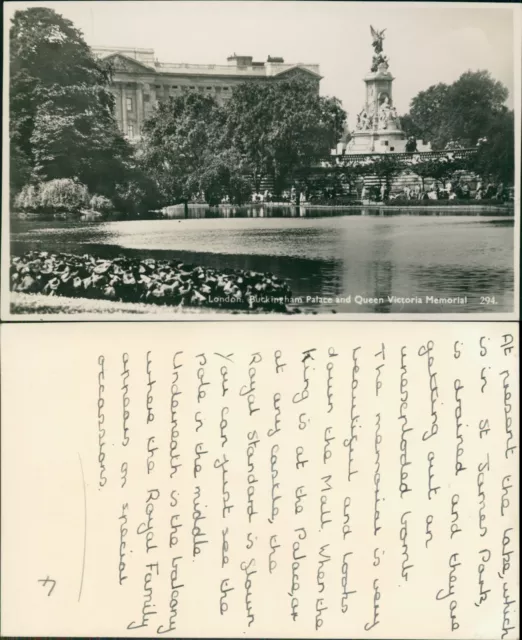 London. Buckingham Palace and Queen Victoria Memorial 294.
At present the lake, which
is in St James Park,
is drained and they are
getting out an
unexploded bomb.
The memorial is very
beautiful and looks
down the Mall. When the
King is at the Palace, or
at any castle, the
Royal Standard is flown
You can just see the
pole in the middle.
Underneath is the balcony
where the Royal Family
appears on special
occassions.
4